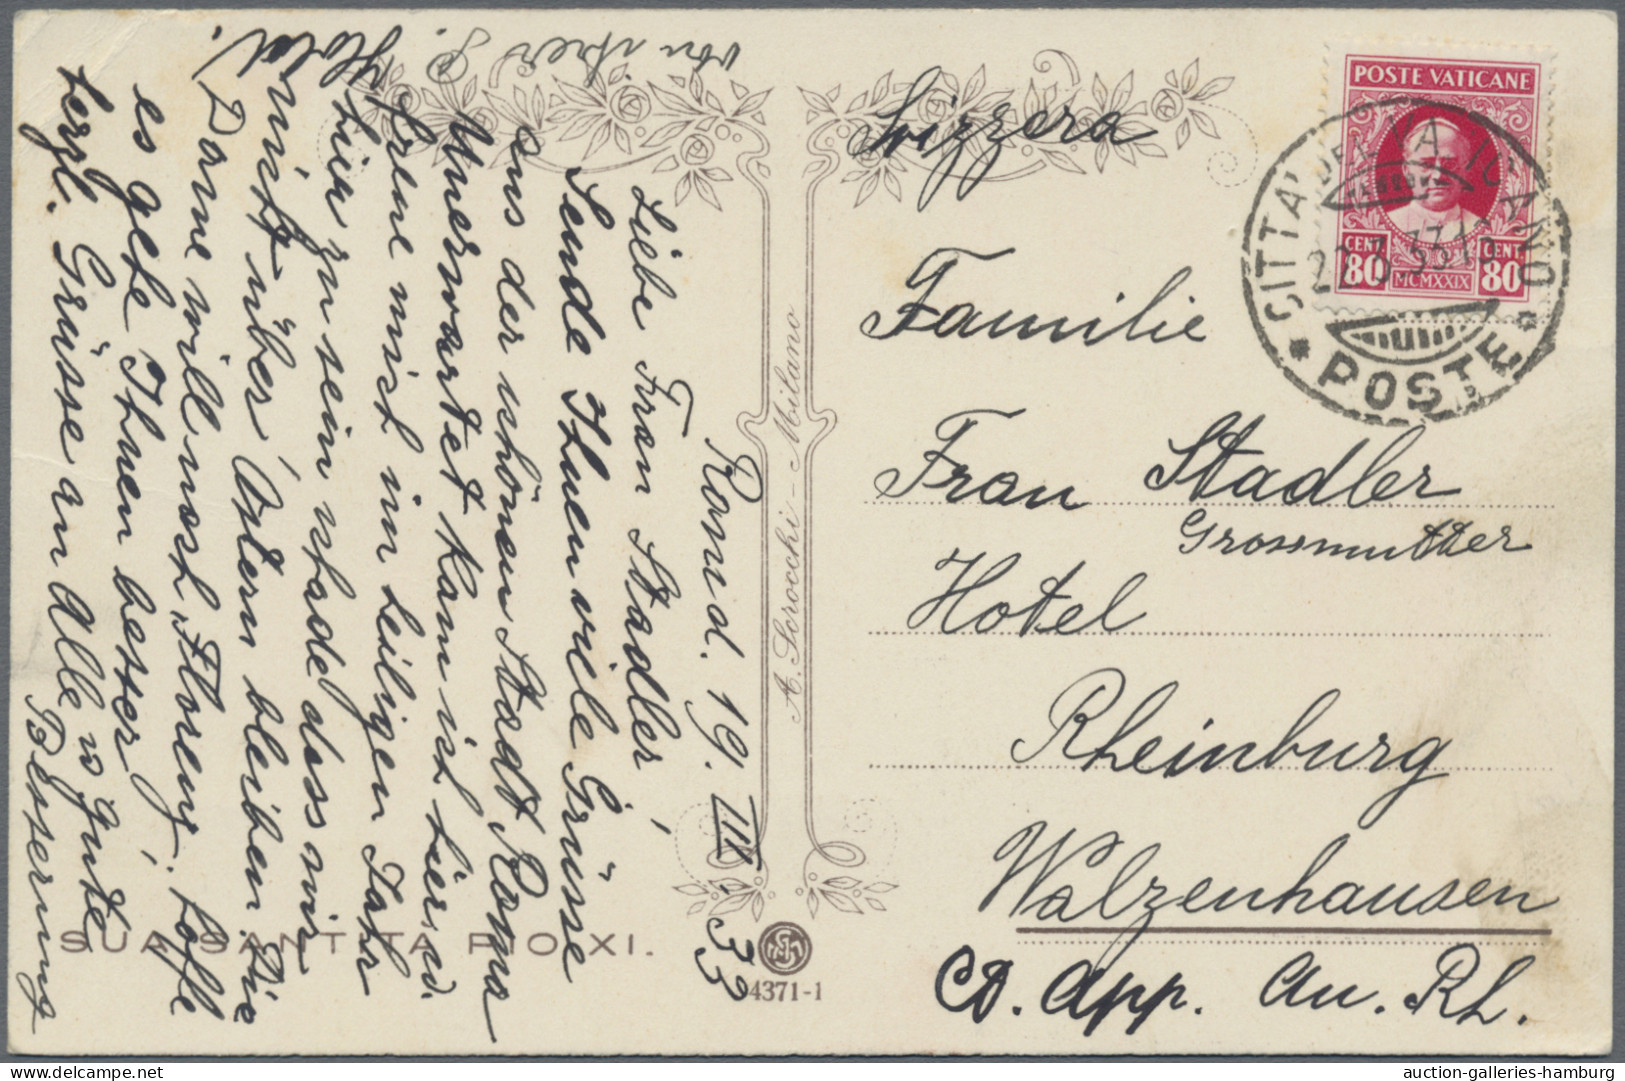 Rom d. 19. III. 33
Liebe Frau Stadler!
Sende Ihnen viele Grüsse
aus der schönen Stadt Roma
Unerwartet kam ich hier an.
freue mich im heiligen Jahr
hier zu sein schade dass wir
nicht über Ostern bleiben. Die
Dame will noch Florenz. hoffe
es gehe Ihnen besser!
herzl. Grüsse an Alle u gute
Besserung
von Ihrer
Svizzera
Familie
Frau Stadler
Grossmutter
Hotel
Rheinburg
Walzenhausen
Ct. App. Au. Rh.
POSTE VATICANE
CENT. 80
MCMXXIX
CENT. 80
CITTA' DEL VATICANO
POSTE
A. Scrocchi - Milano
SUA SANTITA PIO XI.
4371-1
auction-galleries-hamburg